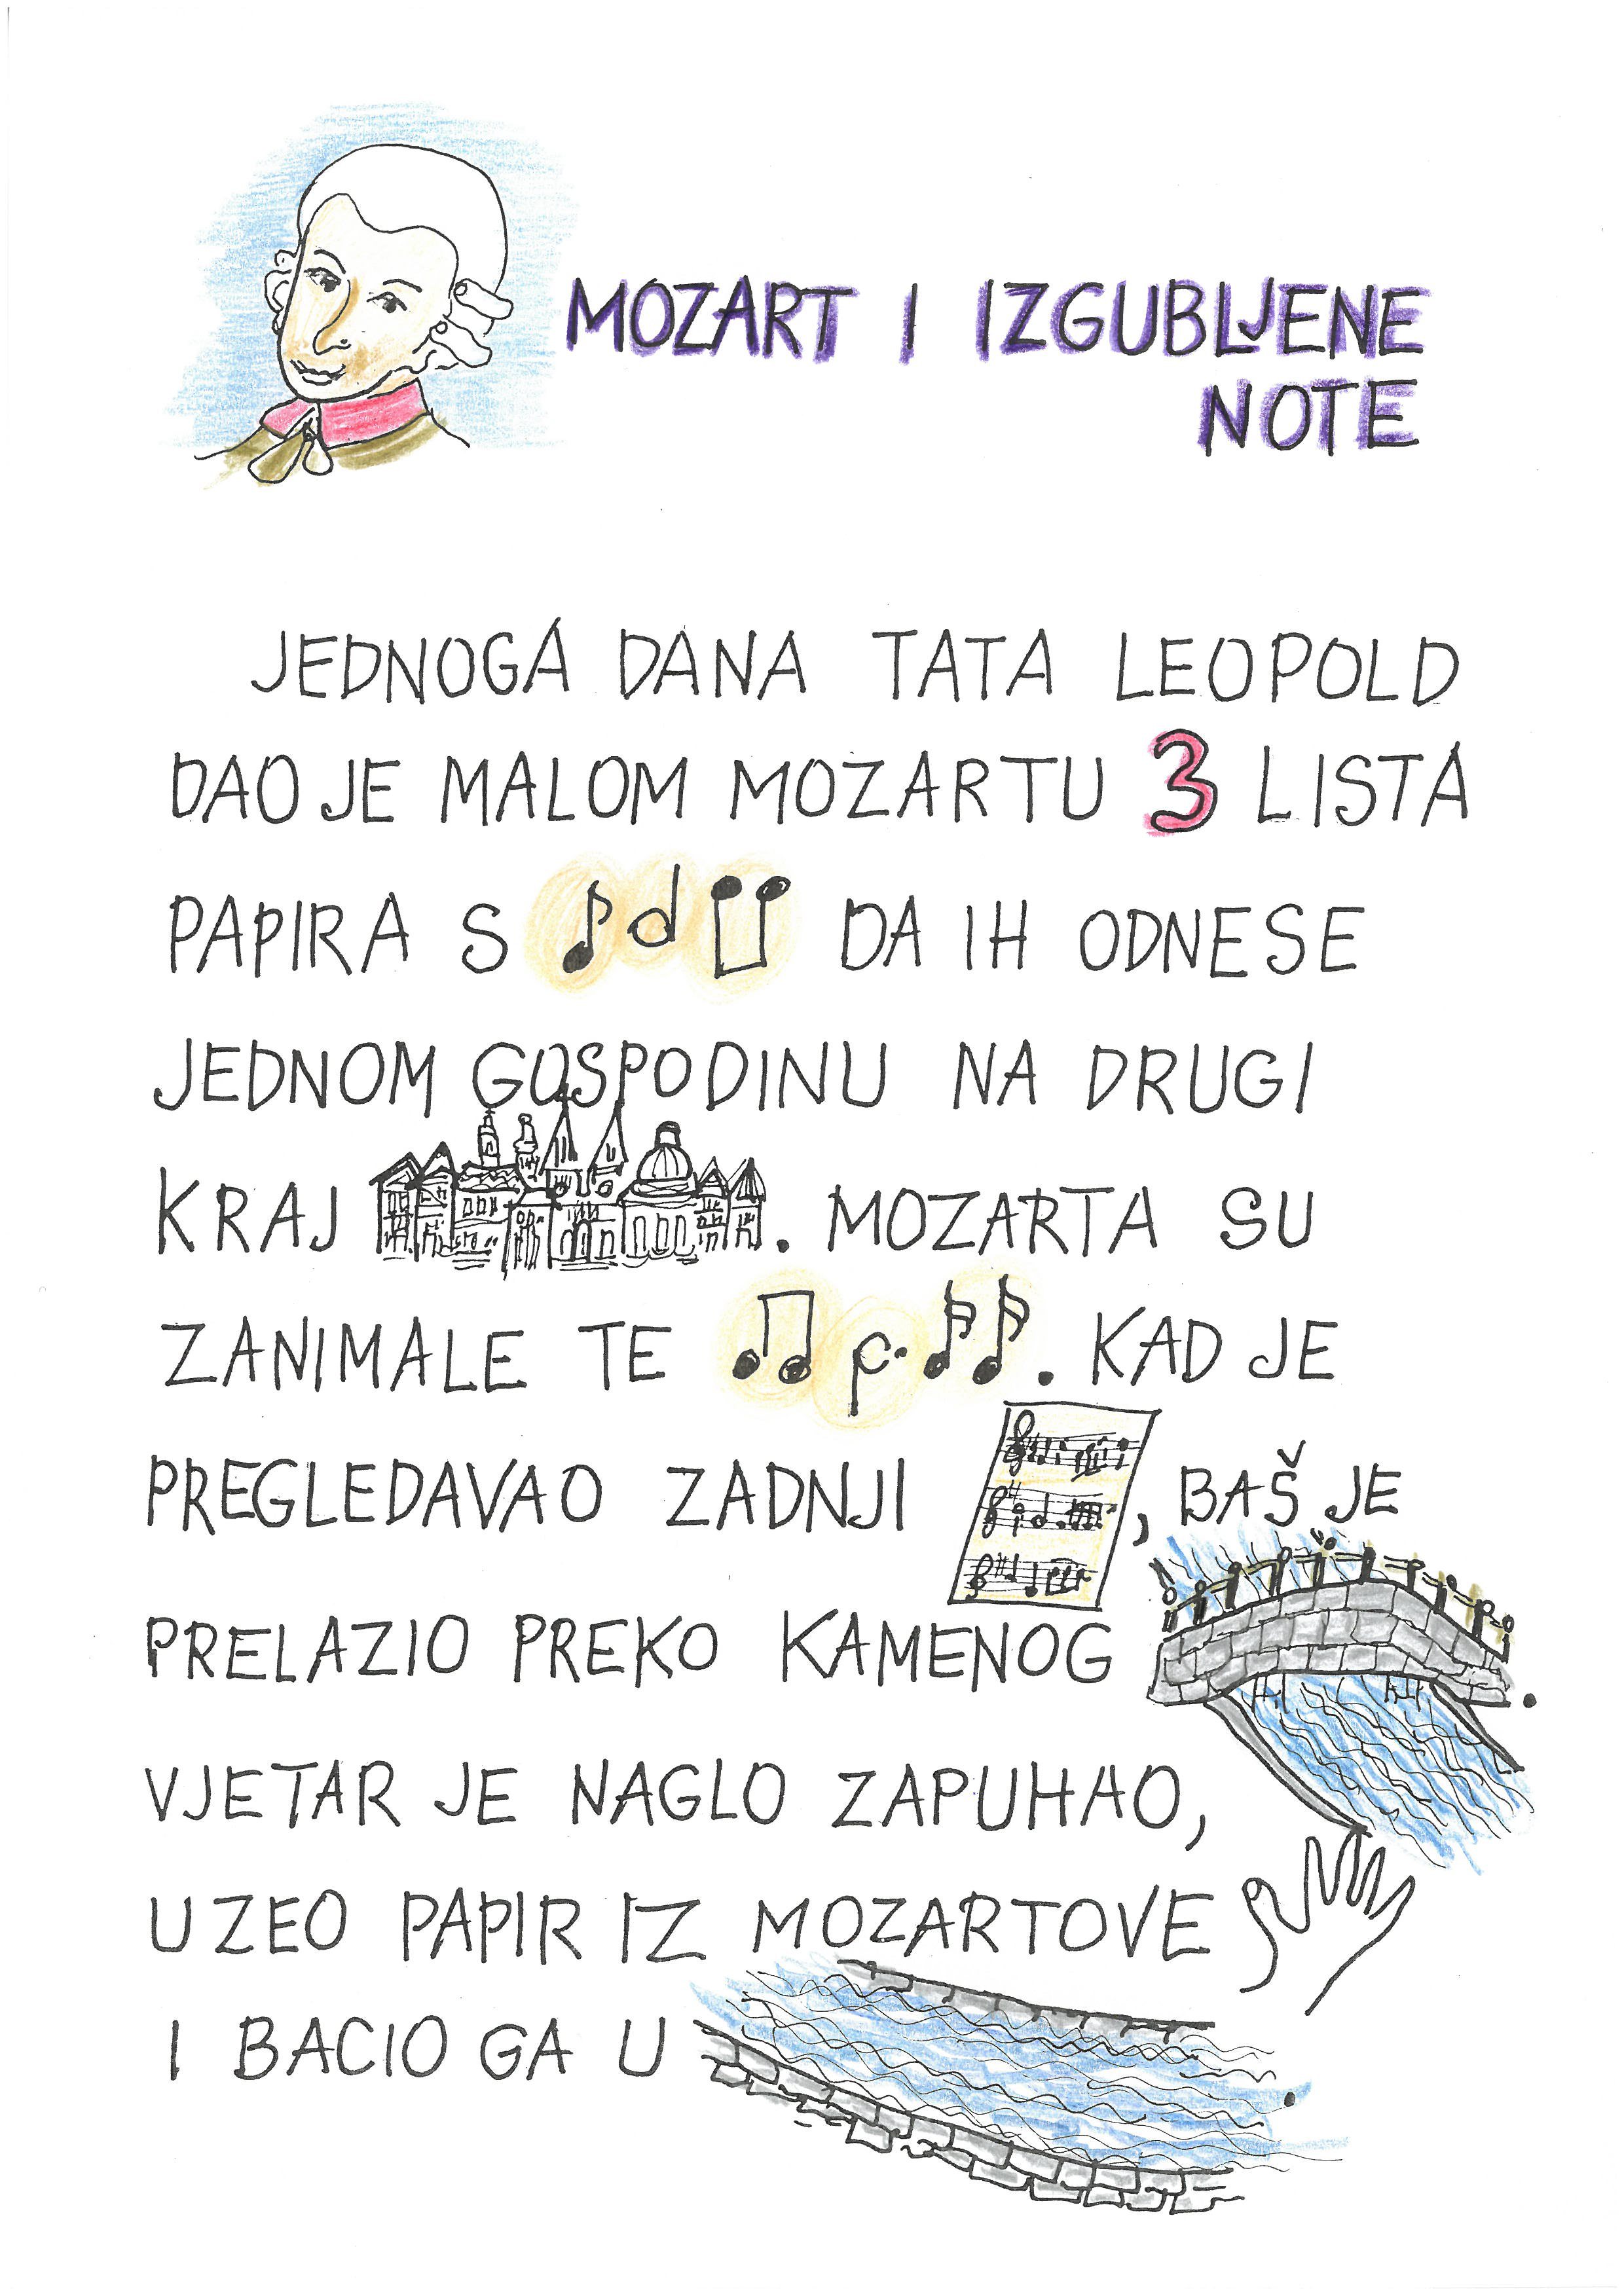 MOZART I IZGUBLJENE
NOTE
JEDNOGA DANA TATA LEOPOLD
DAO JE MALOM MOZARTU 3 LISTA
PAPIRA S DA IH ODNESE
JEDNOM GOSPODINU NA DRUGI
KRAJ . MOZARTA SU
ZANIMALE TE . KAD JE
PREGLEDAVAO ZADNJI , BAŠ JE
PRELAZIO PREKO KAMENOG .
VJETAR JE NAGLO ZAPUHAO,
UZEO PAPIR IZ MOZARTOVE
I BACIO GA U .